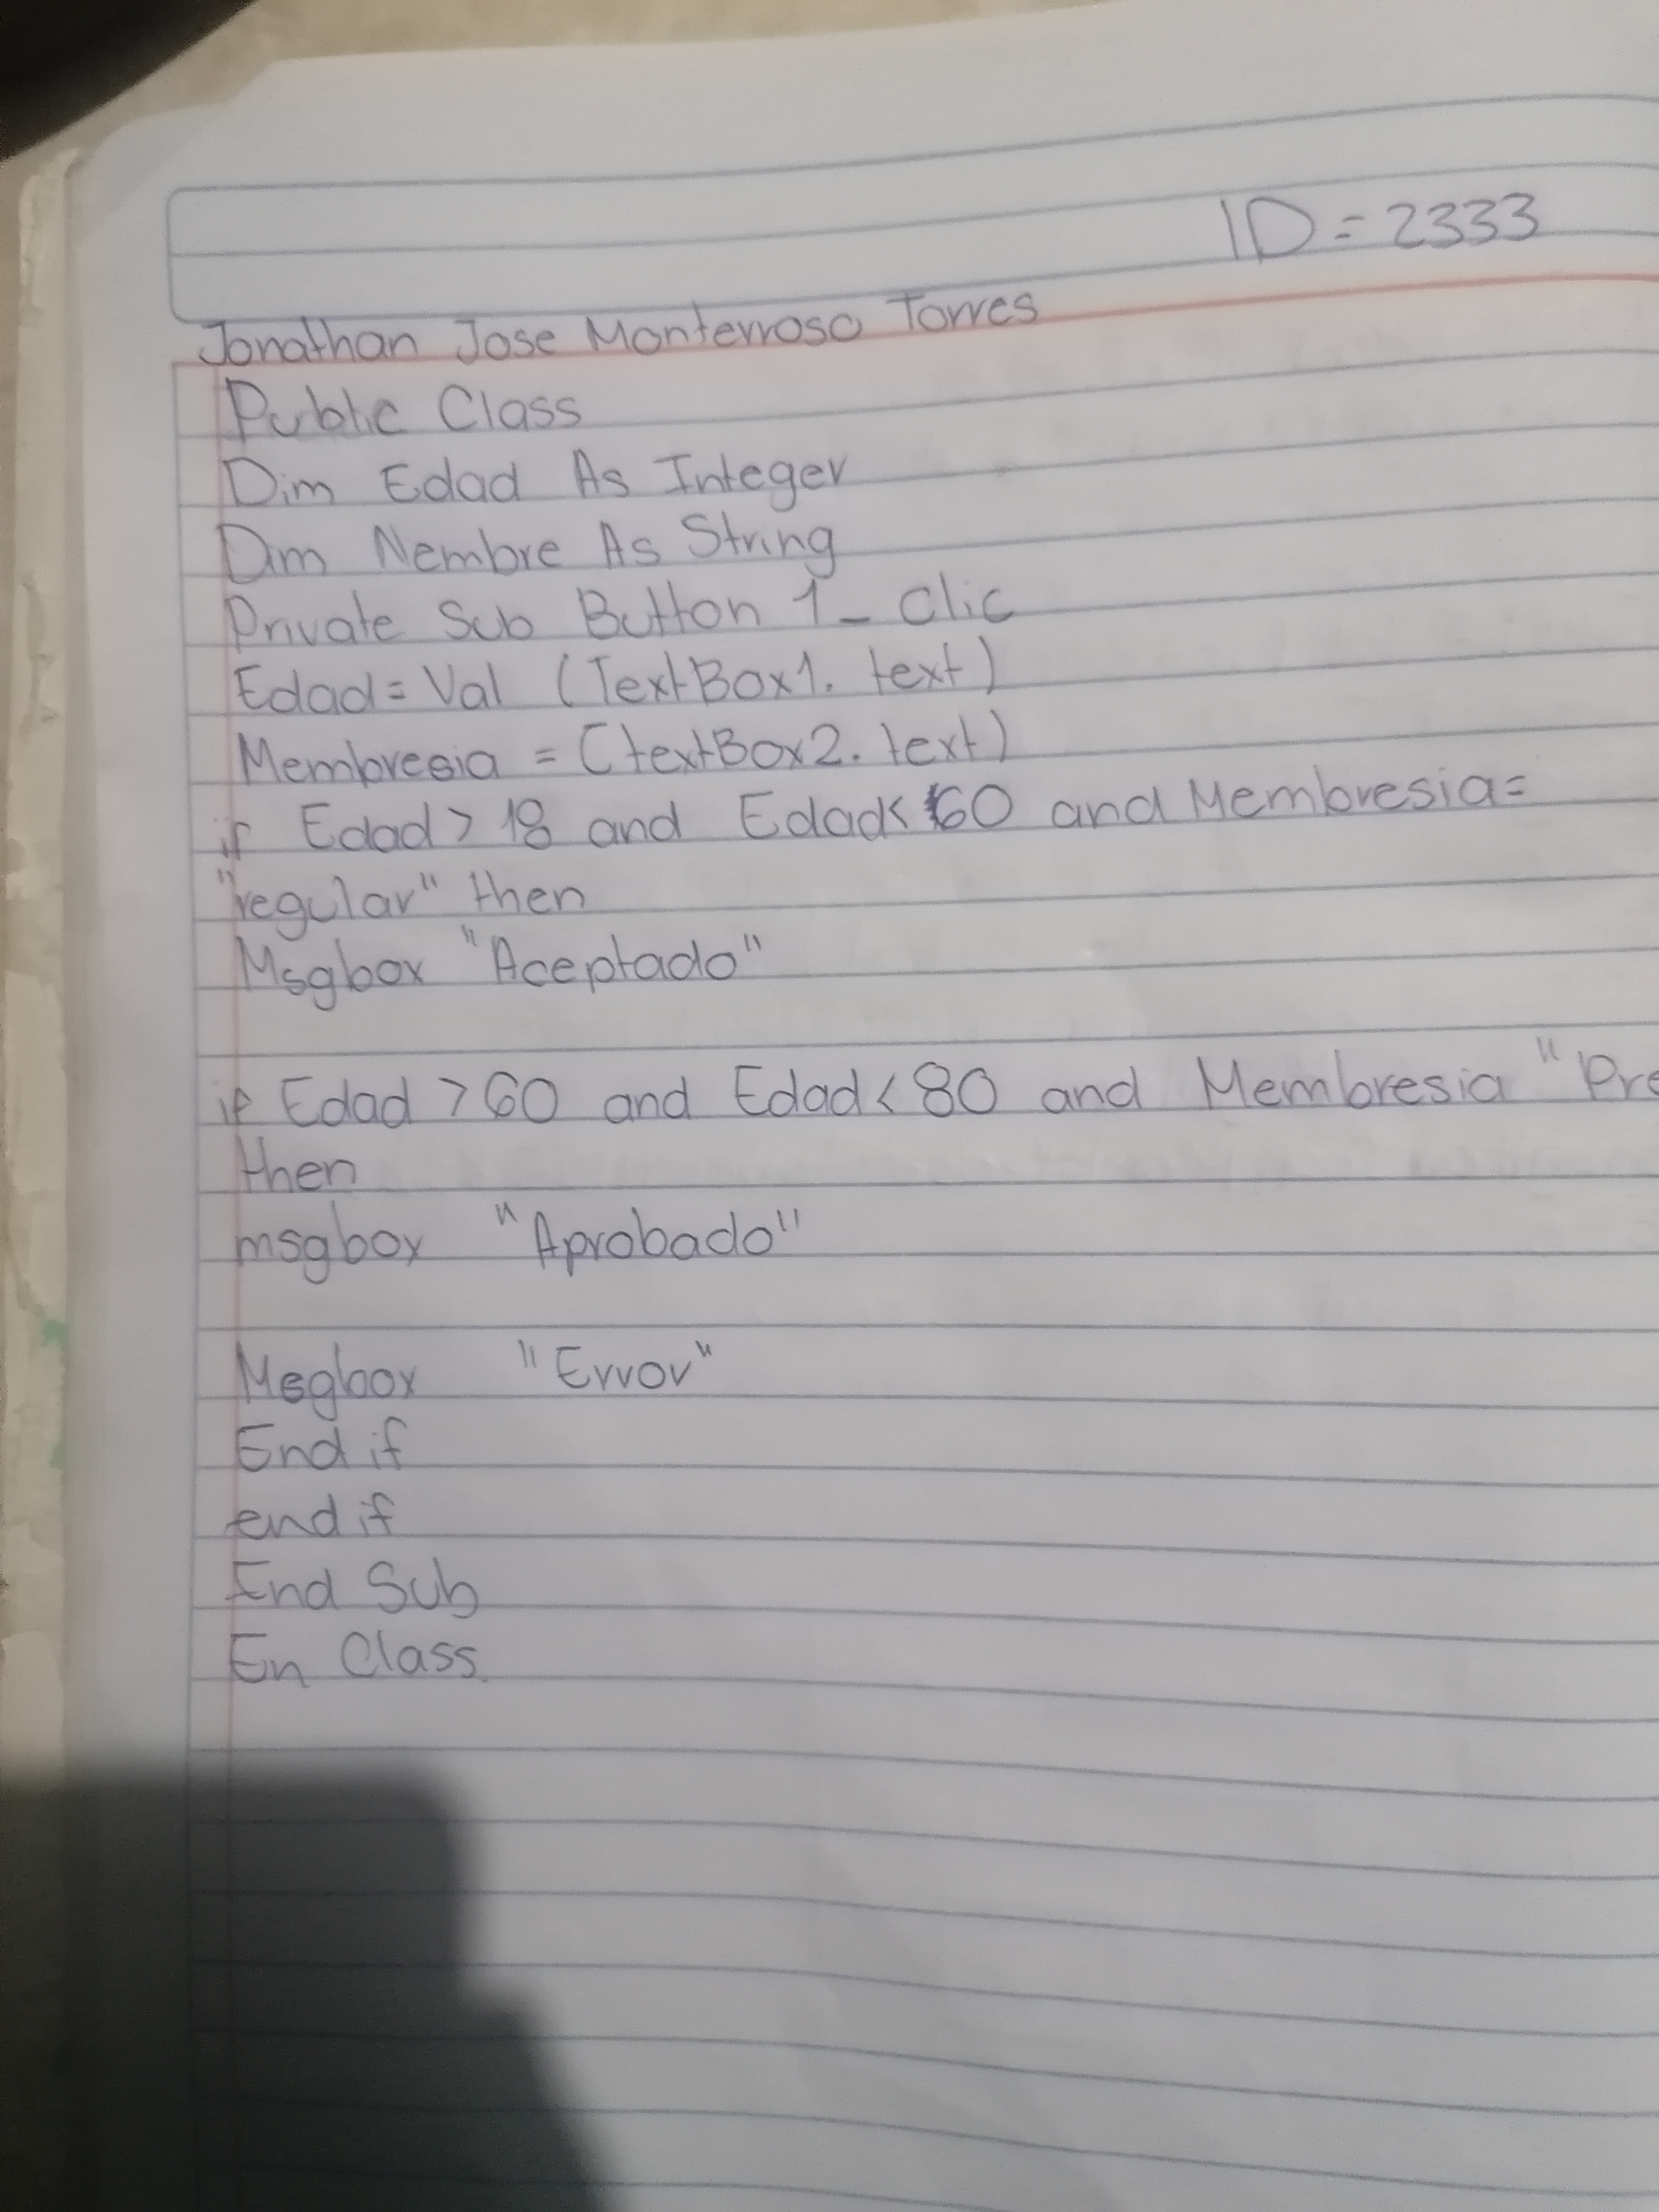 ID = 2333
Jonathan Jose Monterroso Torres
Public Class
Dim Edad As Integer
Dim Nembre As String
Private Sub Button 1_ Clic
Edad = Val (TextBox1. text)
Membresia = (textBox2. text)
if Edad > 18 and Edad < 60 and Membresia =
"regular" then
Msgbox "Aceptado"
if Edad > 60 and Edad < 80 and Membresia "Pre
then
msgbox "Aprobado"
Msgbox "Error"
End if
end if
End Sub
En Class.